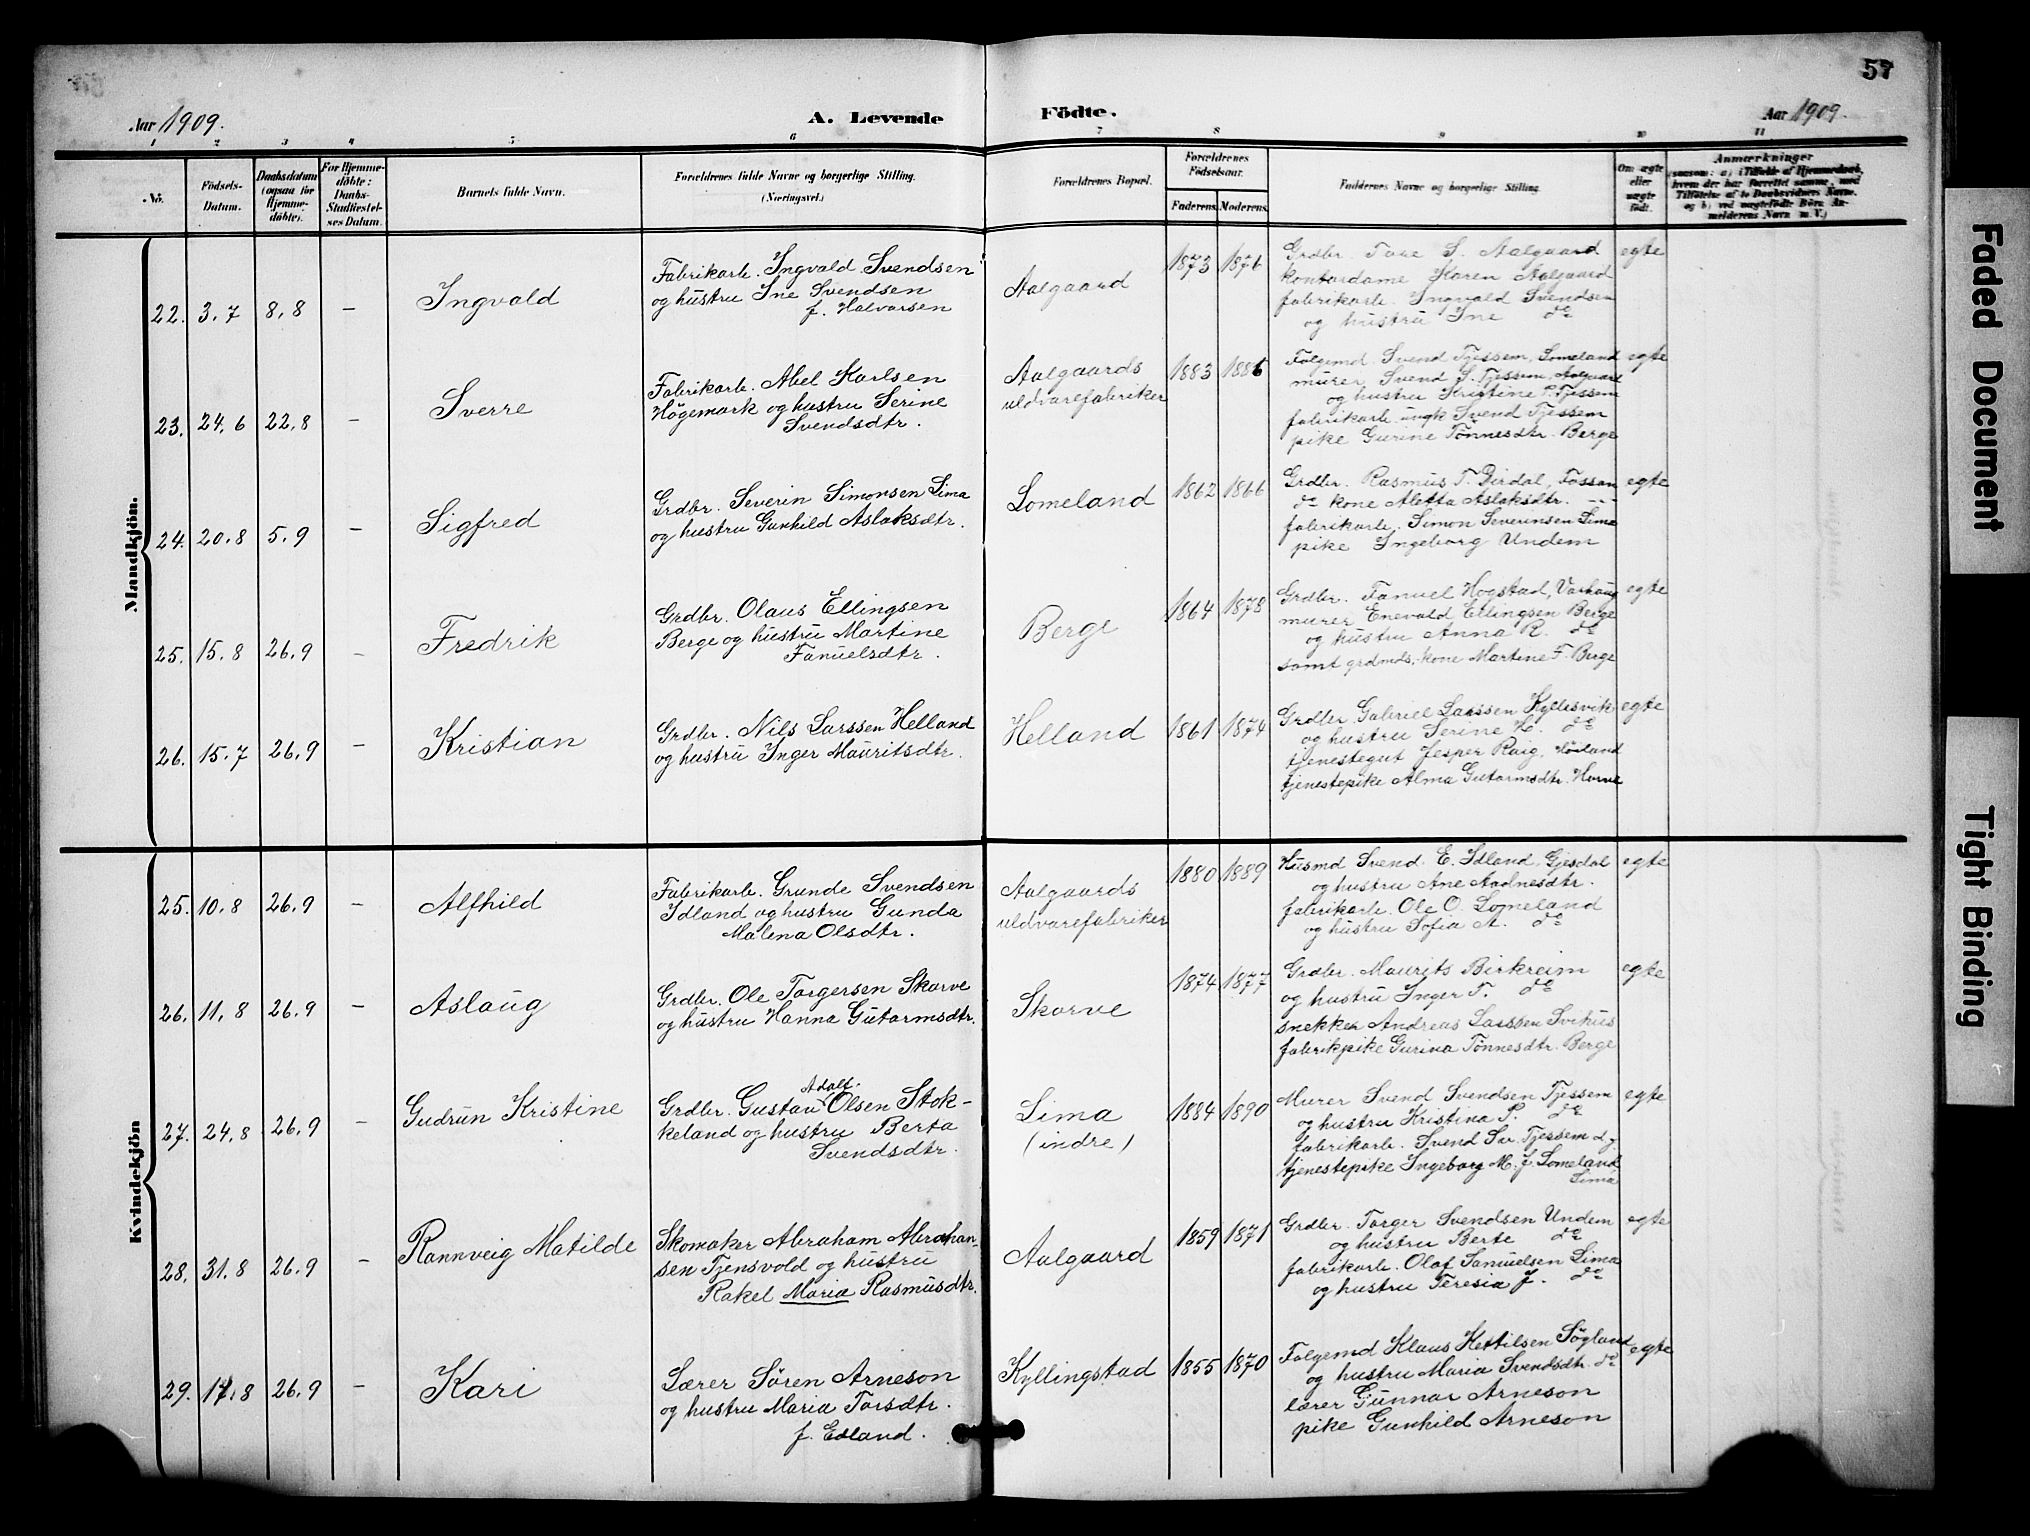 57
Aar 1909.
A. Levende
Födte.
Aar 1909.
1 2 3 4 5 6 7 8 9 10 11
No.
Födsels-Datum.
Daabsdatum (ogsaa for Hjemme-döbte).
For Hjemme-döbte: Daabs-Stadfæstel-ses Datum.
Barnets fulde Navn.
Forældrenes fulde Navne og borgerlige Stilling. (Næringsvei.)
Forældrenes Bopæl.
Forældrenes Födselsaar.
Faderens. Moderens.
Faddernes Navne og borgerlige Stilling.
Om ægte eller uægte födt.
Anmærkninger
(saasom: a) i Tilfælde af Hjemmedaab, hvem der har forrettet samme, med Tilföielse af to Daabsvidners Navne, og b) ved uægtefödte Börn An-melderens Navn m. V.)
Mandkjön.
22. 3.7 8.8 — Ingvald
Fabrikarb. Ingvald Svendsen
og hustru Ine Svendsen
f. Halvorsen
Aalgaard
1873 1876
Grdbr. Tore S. Aalgaard
kontordame Karen Aalgaard
fabrikarb. Ingvald Svendsen
og hustru Ine do
egte
23. 24.6 22.8 — Sverre
Fabrikarb. Abel Karlsen
Högemark og hustru Serine
Svendsdtr.
Aalgaards
uldvarefabriker
1883 1886
Følgemd. Svend Tjessem, Lomeland
murer Svend S. Tjessem, Aalgaard
og hustru Kristine P. Tjessem
fabrikarb. ungk Svend Tjessem
pike Gurine Tönnesdtr. Berge
egte
24. 20.8 5.9 — Sigfred
Grdbr. Severin Simonsen Lima
og hustru Gunhild Aslaksdtr.
Lomeland
1862 1866
Grdbr. Rasmus T. Dirdal, Fossan
do kone Aletta Aslaksdtr. —"—
fabrikarb. Simon Severinsen Lima
pike Ingeborg Undem
egte
25. 15.8 26.9 — Fredrik
Grdbr. Olaus Ellingsen
Berge og hustru Martine
Fanuelsdtr.
Berge
1864 1878
Grdbr. Fanuel Hogstad, Varhaug
murer Enevald Ellingsen Berge
og hustru Anna R. do
samt grdmds.-kone Martine F. Berge
egte
26. 15.7 26.9 — Kristian
Grdbr. Nils Larssen Helland
og hustru Inger Mauritsdtr.
Helland
1861 1874
Grdbr. Gabriel Larssen Kyllesvik
og hustru Serine H. do
tjenestegut Jesper Raig,
tjenestepike Alma Gutormsdtr.
egte
Kvindekjön
25. 10.8 26.9 — Alfhild
Fabrikarb. Grunde Svendsen
Idland og hustru Gunda
Malena Olsdtr.
Aalgaards
uldvarefabriker
1880 1889
Husmd Svend E. Idland, Gjesdal
og hustru Ane Aadnesdtr.
fabrikarb. Ole O. Lomeland
og hustru Sofia A. do
egte
26. 11.8 26.9 — Aslaug
Grdbr. Ole Torgersen Skorve
og hustru Hanna Gutormsdtr.
Skorve
1874 1877
Grdbr. Maurits Birkreim
og hustru Inger T. do
snekker Andreas Larssen
fabrikpike Gurina Tönnesdtr. Berge
egte
27. 24.8 26.9 — Gudrun Kristine
Grdbr. Gustav Adolf. Olsen Stok-
keland og hustru Berta
Svendsdtr.
Lima
(indre)
1884 1890
Murer Svend Svendsen Tjessem
og hustru Kristina P. do
fabrikarb. Svend Sv. Tjessem
tjenestepike Ingeborg M. J. Lomeland
Lima
egte
28. 31.8 26.9 — Rannveig Matilde
Skomaker Abraham Abrahan-
sen Tjensvold og hustru
Rakel Maria Rasmusdtr.
Aalgaard
1859 1871
Grdbr. Torger Svendsen Undem
og hustru Berte do
fabrikarb. Olaf Samuelsen Lima
og hustru Teresia J. do
egte
29. 17.8 26.9 — Kari
Lærer Sören Arneson
og hustru Maria Torsdtr.
f. Edland.
Kyllingstad
1855 1870
Følgemd Klaus Kettilsen Sögland
og hustru Maria Svendsdtr. do
lærer Gunnar Arneson
pike Gunhild Arneson
egte
Faded Document
Tight Binding